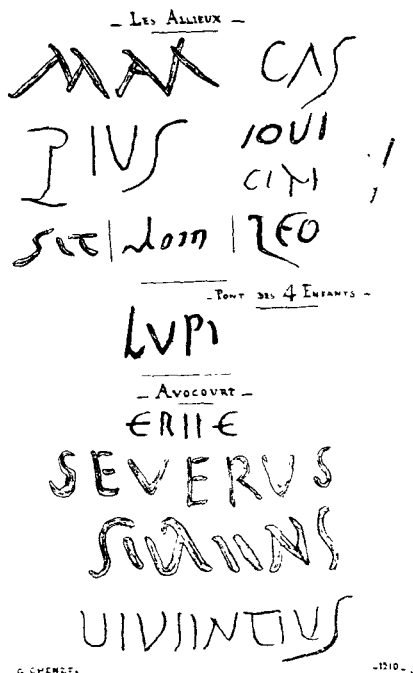 – Les Allieux –
MAX CAS
PIUS IOUI
CIM
SIT | dom | LEO
– Pont des 4 Enfants –
LVPI
– Avocourt –
ERIIE
SEVERUS
UIVIINTIUS
G. CHENET.